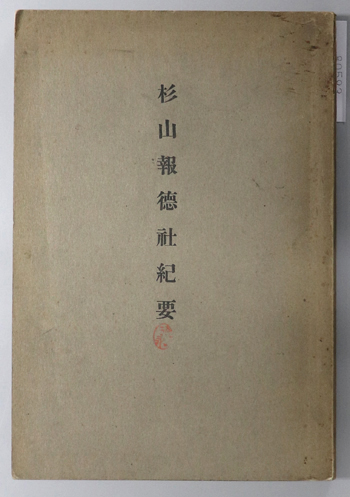 杉山報德社紀要